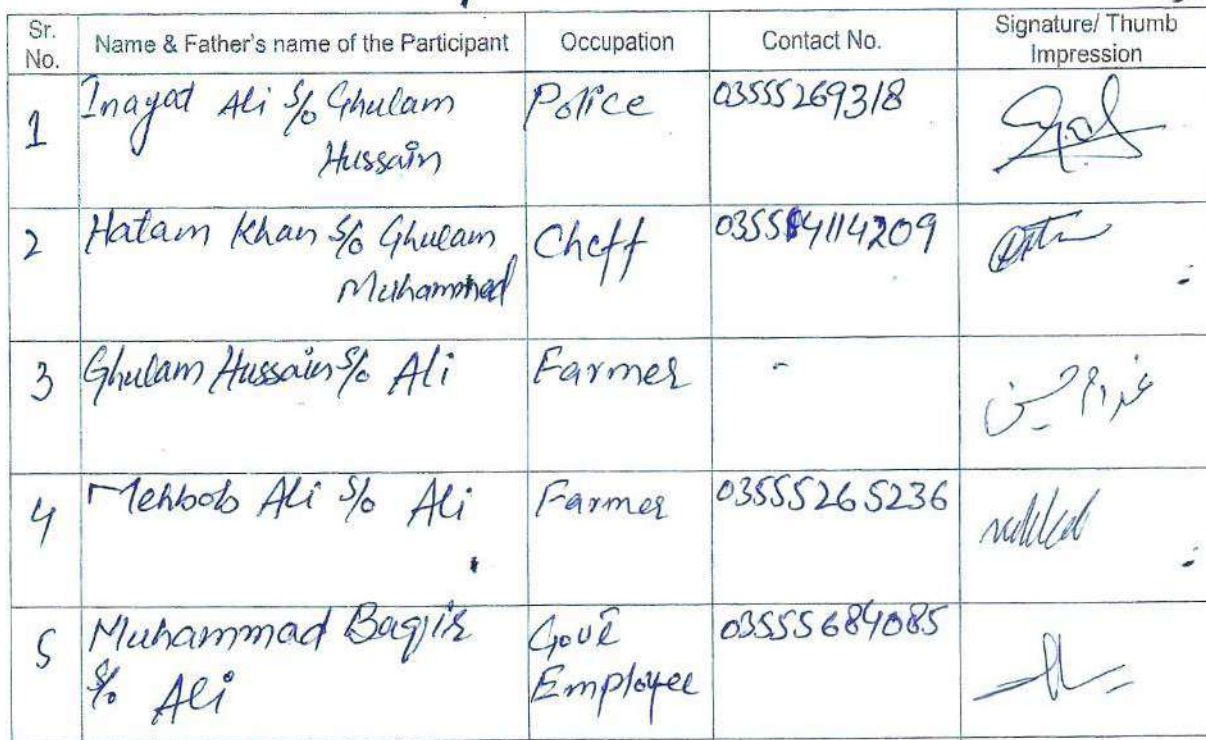 Sr. No.
Name & Father's name of the Participant
Occupation
Contact No.
Signature/ Thumb Impression
1
Inayat Ali S/o Ghulam
Hussain
Police
03555269318
2
Hatam Khan S/o Ghulam
Muhammad
Cheff
3
Ghulam Hussain S/o Ali
Farmer
-
غلام حسین
4
Mehbob Ali S/o Ali
Farmer
03555265236
5
Muhammad Baqir
S/o Ali
Govt
Employee
03555684085